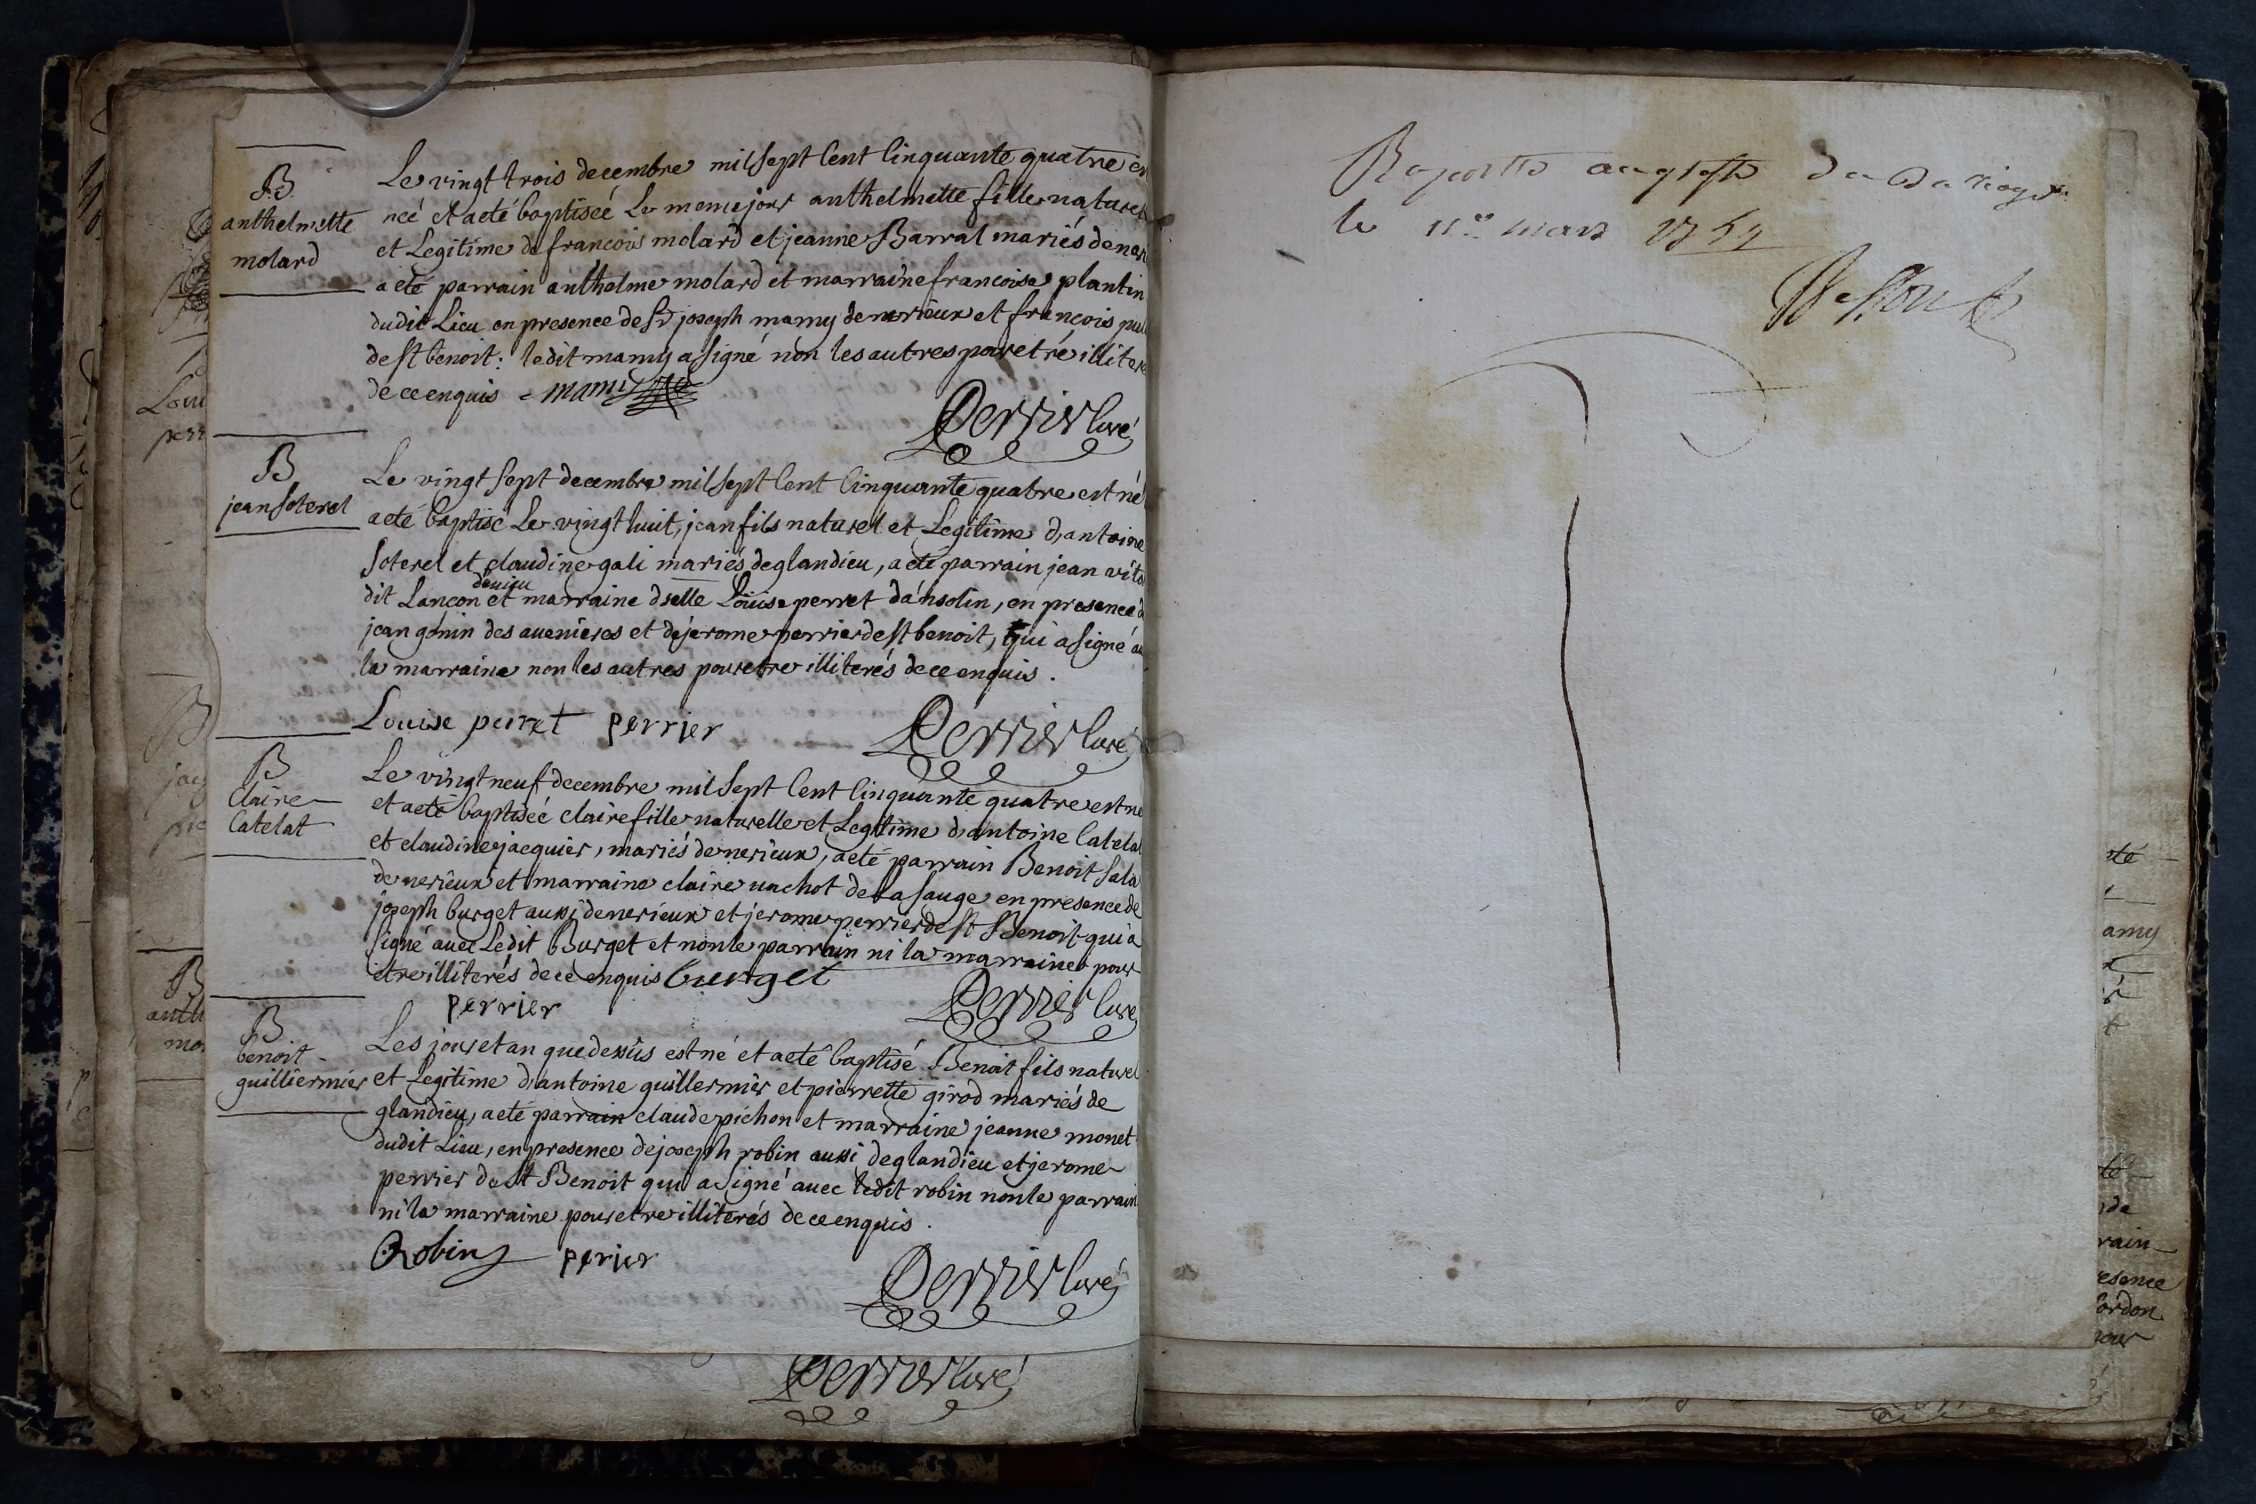 B
anthelmette
molard
Le vingt trois decembre mil sept Cent Cinquante quatre
neé et a eté baptiseé Le meme jour anthelmette fille naturel
et Legitime de françois molard et jeanne Barral mariés de
a eté parrain anthelme molard et marraine francoise plantin
dudit Lieu en presence de Sr joseph mamy de nerieux et françois
de st benoit : ledit mamy a signé non les autres pour etre illiter
de ce enquis - mamy
Perrier Curé
B
jean soterel
Le vingt sept decembre mil sept Cent Cinquante quatre est né
a eté baptisé Le vingt huit, jean fils naturel et Legitime d'antoine
soterel et claudine gali mariés de glandieu, a eté parrain jean
dit Lançon et marraine dselle Loüise perret d'ansolin, en presence d
jean gonin des avenieres et de jerome perrier de st benoit, qui a signé
la marraine non les autres pour etre illiterés de ce enquis .
Louise perret perrier
Perrier Curé
B
Claire
Catelat
Le vingt neuf decembre mil sept Cent Cinquante quatre est ne
et a eté baptiseé claire fille naturelle et Legitime d'antoine Catela
et claudine jacquier, mariés de nerieux, a eté parrain Benoit Sala
de nerieux et marraine claire vachot de La sauge en presence de
joseph burget aussi de nerieux et jerome perrier de st Benoit qui a
signé avec Ledit Burget et non le parrain ni la marraine pour
etre illiterés de ce enquis burget
perrier
Perrier Curé
B
benoit
guilliermier
Les jour et an que dessus est né et a eté baptisé Benoit fils naturel
et Legitime d'antoine guillermier et pierrette girod mariés de
glandieu, a eté parrain claude pichon et marraine jeanne monet
dudit Lieu, en presence de joseph robin aussi de glandieu et jerome
perrier de st Benoit qui a signé avec ledit robin non le parrain
ni la marraine pour etre illiterés de ce enquis .
Robin perier
Perrier Curé
Perrier Curé
le 11 mars